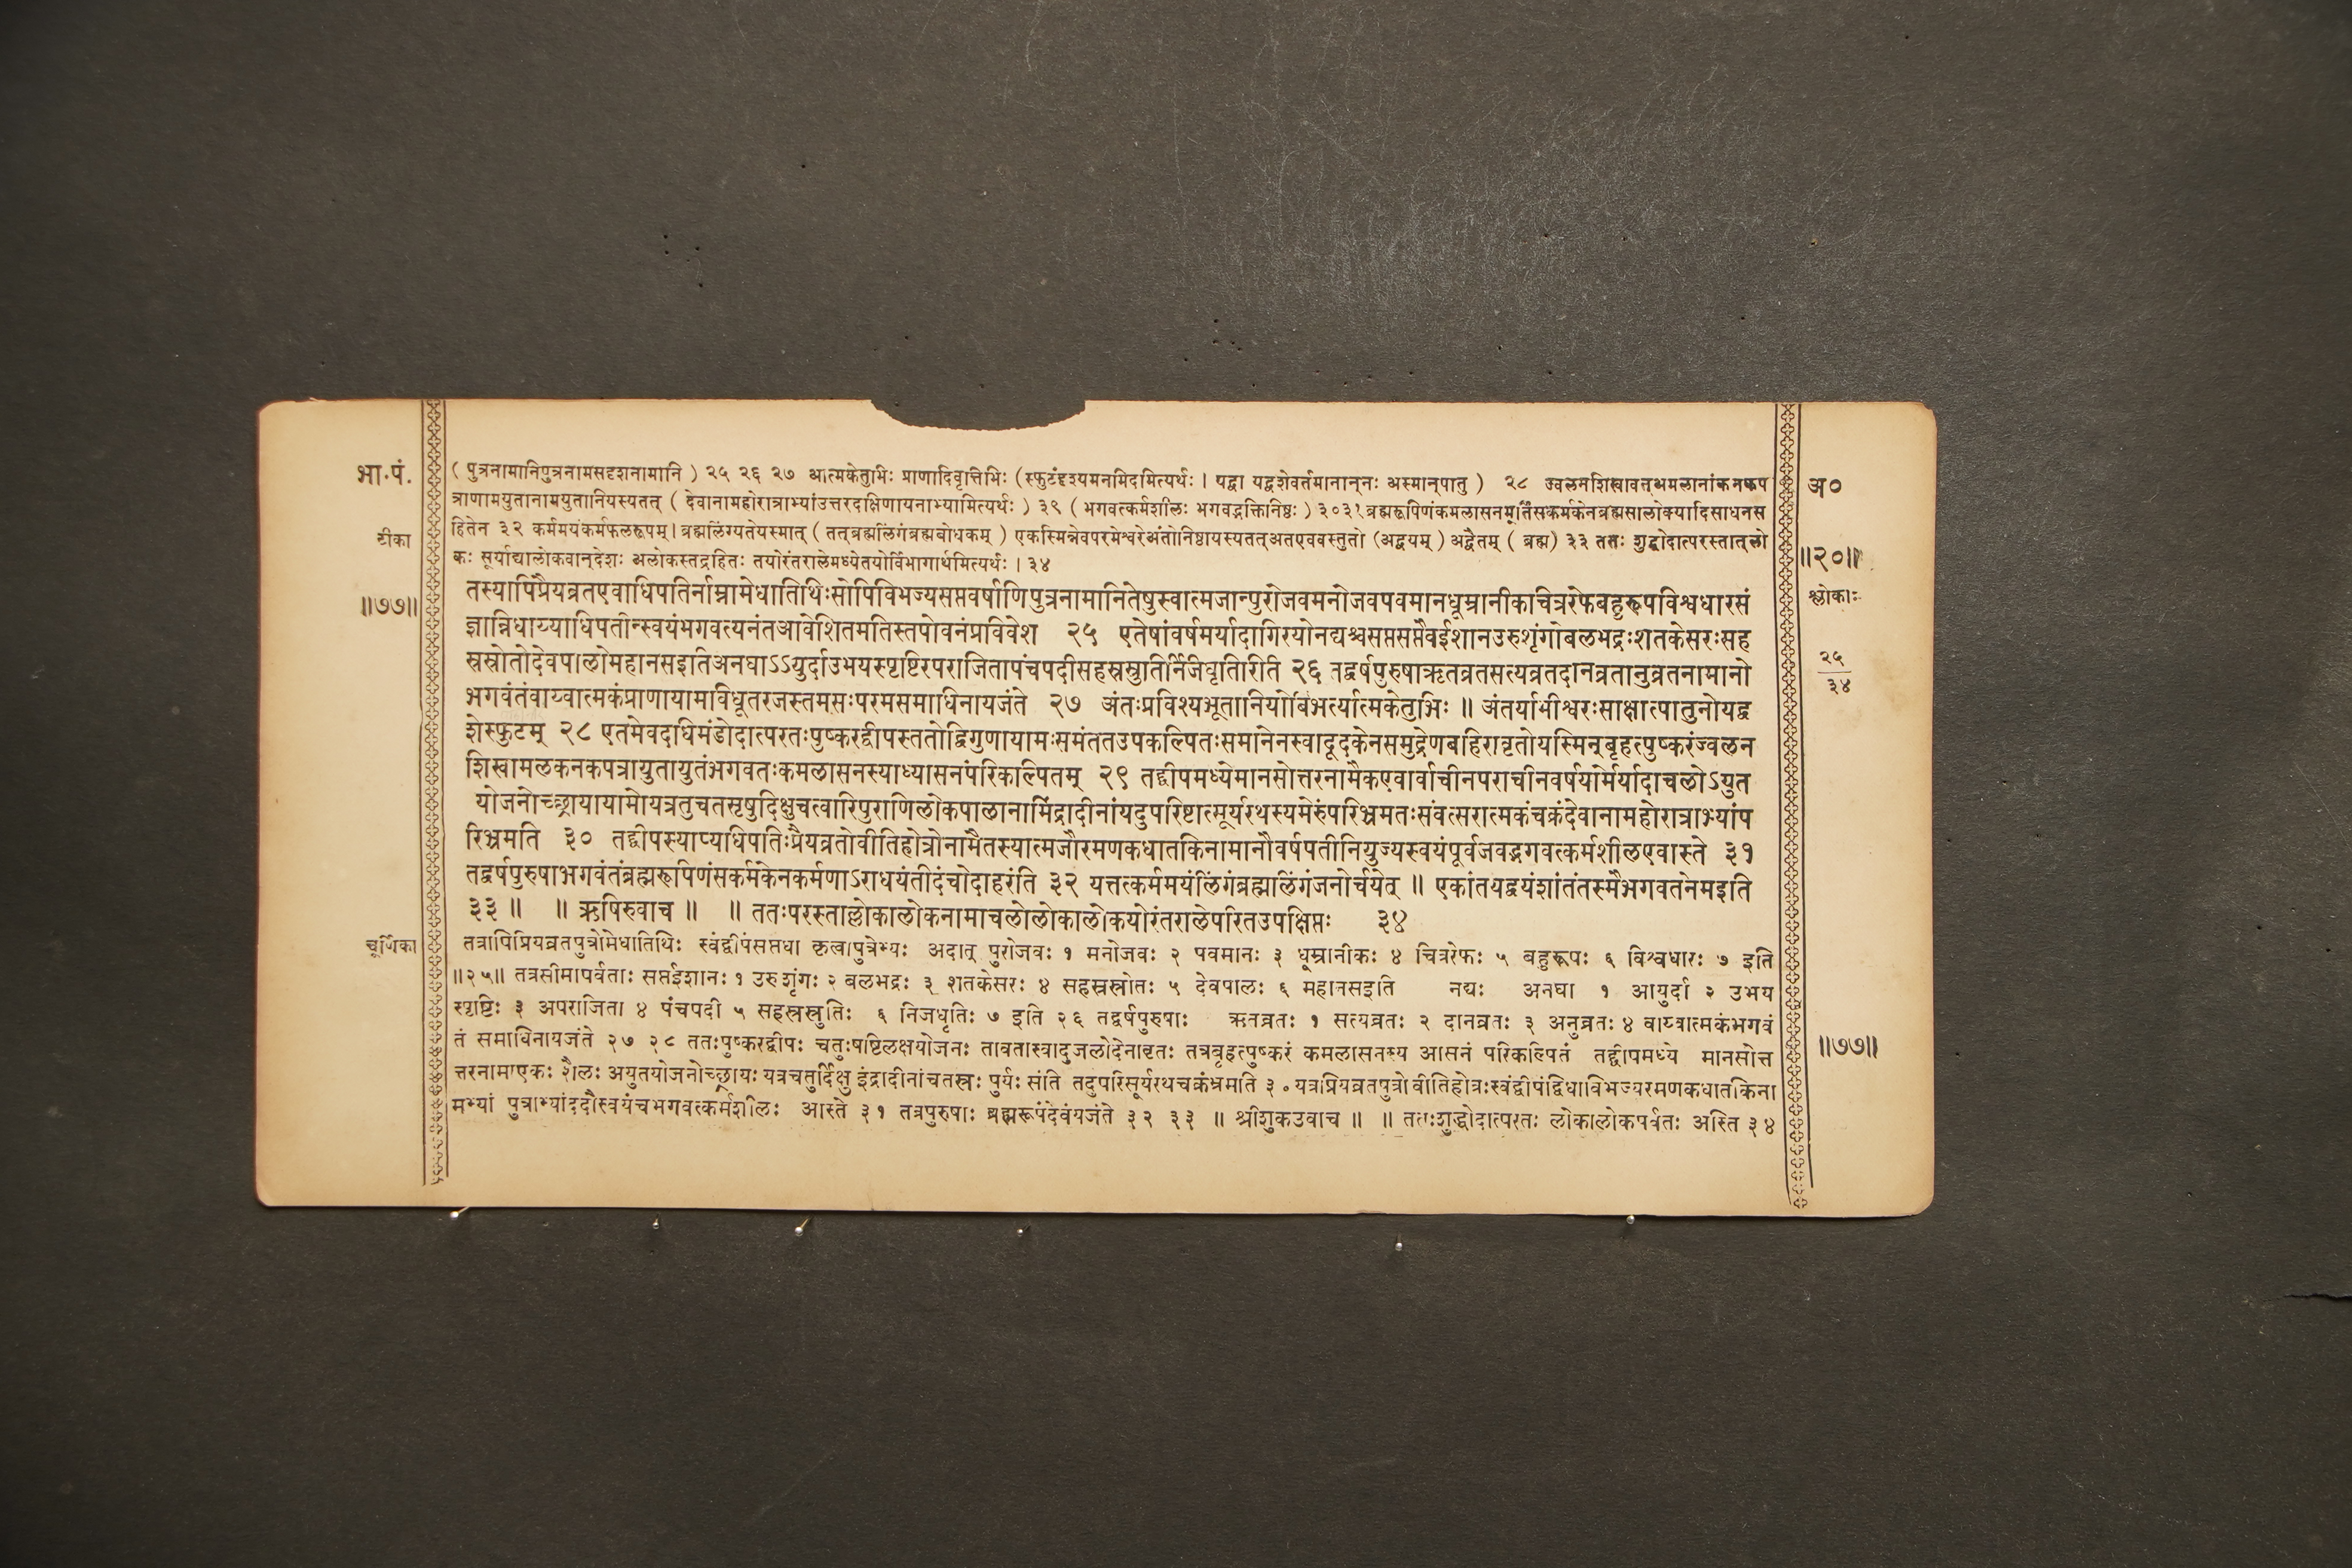 भा.पं.
टीका
॥७७॥
( पुत्रनामानिपुत्रनामसदृशनामानि ) २५ २६ २७ आत्मकेतुभिः प्राणादिवृत्तिभिः (स्फुटंदृश्यमनमिदमित्यर्थः । यद्वा यद्वशेवर्तमानान्‌नः अस्मान्‌पातु ) २८ ज्वलनशिखावत्‌अमलानांकनकप
त्राणामयुतानामयुतानियस्यतत् ( देवानामहोरात्राभ्यांउत्तरदक्षिणायनाभ्यामित्यर्थः ) ३९ ( भगवत्कर्मशीलः भगवद्भक्तिनिष्ठः ) ३०३१ ब्रह्मरूपिणंकमलासनमूर्तिंसकर्मकेनब्रह्मसालोक्यादिसाधनस
हितेन ३२ कर्ममयंकर्मफलरूपम् । ब्रह्मलिंग्यतेयस्मात् ( तत्‌ब्रह्मलिंगंब्रह्मबोधकम् ) एकस्मिन्नेवपरमेश्वरेअंतोनिष्ठायस्यतत्‌अतएववस्तुतो (अद्वयम् ) अद्वैतम् ( ब्रह्म) ३३ ततः शुद्धोदात्परस्तात्‌लो
कः सूर्याद्यालोकवान्‌देशः अलोकस्तद्रहितः तयोरंतरालेमध्येतयोर्विभागार्थमित्यर्थः । ३४
तस्यापिप्रैयव्रतएवाधिपतिर्नाम्नामेधातिथिःसोपिविभज्यसप्तवर्षाणिपुत्रनामानितेषुस्वात्मजान्पुरोजवमनोजवपवमानधूम्रानीकचित्ररेफबहुरूपविश्वधारसं
ज्ञान्निधाय्याधिपतीन्स्वयंभगवत्यनंतआवेशितमतिस्तपोवनंप्रविवेश २५ एतेषांवर्षमर्यादागिरयोनद्यश्चसप्तसप्तैवईशानउरुशृंगोबलभद्रःशतकेसरःसह
स्रस्रोतोदेवपालोमहानसइतिअनघाऽऽयुर्दाउभयस्पृष्टिरपराजितापंचपदीसहस्रस्रुतिर्निजधृतिरिति २६ तद्वर्षपुरुषाऋतव्रतसत्यव्रतदानव्रतानुव्रतनामानो
भगवंतंवाय्वात्मकंप्राणायामविधूतरजस्तमसःपरमसमाधिनायजंते २७ अंतःप्रविश्यभूतानियोबिभर्त्यात्मकेतुभिः ॥ अंतर्यामीश्वरःसाक्षात्पातुनोयद्व
शेस्फुटम् २८ एतमेवदधिमंडोदात्परतःपुष्करद्वीपस्ततोद्विगुणायामःसमंततउपकल्पितःसमानेनस्वादूदकेनसमुद्रेणबहिरावृतोयस्मिन्‌बृहत्पुष्करंज्वलन
शिखामलकनकपत्रायुतायुतंभगवतःकमलासनस्याध्यासनंपरिकल्पितम् २९ तद्द्वीपमध्येमानसोत्तरनामैकएवार्वाचीनपराचीनवर्षयोर्मर्यादाचलोऽयुत
योजनोच्छ्रायायामोयत्रतुचतसृषुदिक्षुचत्वारिपुराणिलोकपालानामिंद्रादीनांयदुपरिष्टात्सूर्यरथस्यमेरुंपरिभ्रमतःसंवत्सरात्मकंचक्रंदेवानामहोरात्राभ्यांप
रिभ्रमति ३० तद्द्वीपस्याप्यधिपतिःप्रैयव्रतोवीतिहोत्रोनामैतस्यात्मजौरमणकधातकिनामानौवर्षपतीनियुज्यस्वयंपूर्वजवद्भगवत्कर्मशीलएवास्ते ३१
तद्वर्षपुरुषाभगवंतंब्रह्मरूपिणंसकर्मकेनकर्मणाऽराधयंतीदंचोदाहरंति ३२ यत्तत्कर्ममयंलिंगंब्रह्मलिंगंजनोर्चयेत् ॥ एकांतयद्वयंशांतंतस्मैभगवतेनमइति
३३ ॥ ॥ ऋषिरुवाच ॥ ॥ ततःपरस्ताल्लोकालोकनामाचलोलोकालोकयोरंतरालेपरितउपक्षिप्तः ३४
चूर्णिका
तत्रापिप्रियव्रतपुत्रोमेधातिथिः स्वंद्वीपंसप्तधा कृत्वापुत्रेभ्यः अदात् पुरोजवः १ मनोजवः २ पवमानः ३ धूम्रानीकः ४ चित्ररेफः ५ बहुरूपः ६ विश्वधारः ७ इति
॥२५॥ तत्रसीमापर्वताः सप्तईशानः १ उरुशृंगः २ बलभद्रः ३ शतकेसरः ४ सहस्रस्रोतः ५ देवपालः ६ महानसइति नद्यः अनघा १ आयुर्दा २ उभय
स्पृष्टिः ३ अपराजिता ४ पंचपदी ५ सहस्रस्रुतिः ६ निजधृतिः ७ इति २६ तद्वर्षपुरुषाः ऋतव्रतः १ सत्यव्रतः २ दानव्रतः ३ अनुव्रतः ४ वाय्वात्मकंभगवं
तं समाधिनायजंते २७ २८ ततःपुष्करद्वीपः चतुःषष्टिलक्षयोजनः तावतास्वादुजलोदेनावृतः तत्रबृहत्पुष्करं कमलासनस्य आसनं परिकल्पितं तद्द्वीपमध्ये मानसोत्त
त्तरनामाएकः शैलः अयुतयोजनोच्छ्रायः यत्रचतुर्दिक्षु इंद्रादीनांचतस्रः पुर्यः संति तदुपरिसूर्यरथचक्रंभ्रमति ३० यत्रप्रियव्रतपुत्रो वीतिहोत्रःस्वंद्वीपंद्विधाविभज्यरमणकधातकिना
मभ्यां पुत्राभ्यांददौस्वयंचभगवत्कर्मशीलः आस्ते ३१ तत्रपुरुषाः ब्रह्मरूपंदेवंयजंते ३२ ३३ ॥ श्रीशुकउवाच ॥ ॥ ततःशुद्धोदात्परतः लोकालोकपर्वतः अस्ति ३४
अ०
॥२०॥
श्लोकाः
२५
३४
॥७७॥